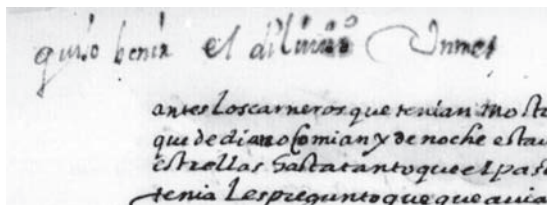 quiso benir el diluuio un mes
antes los carneros que tenian mostra
que de dia no comian y de noche estau
estrellas hasta tanto que el past
tenia les pregunto que que auia